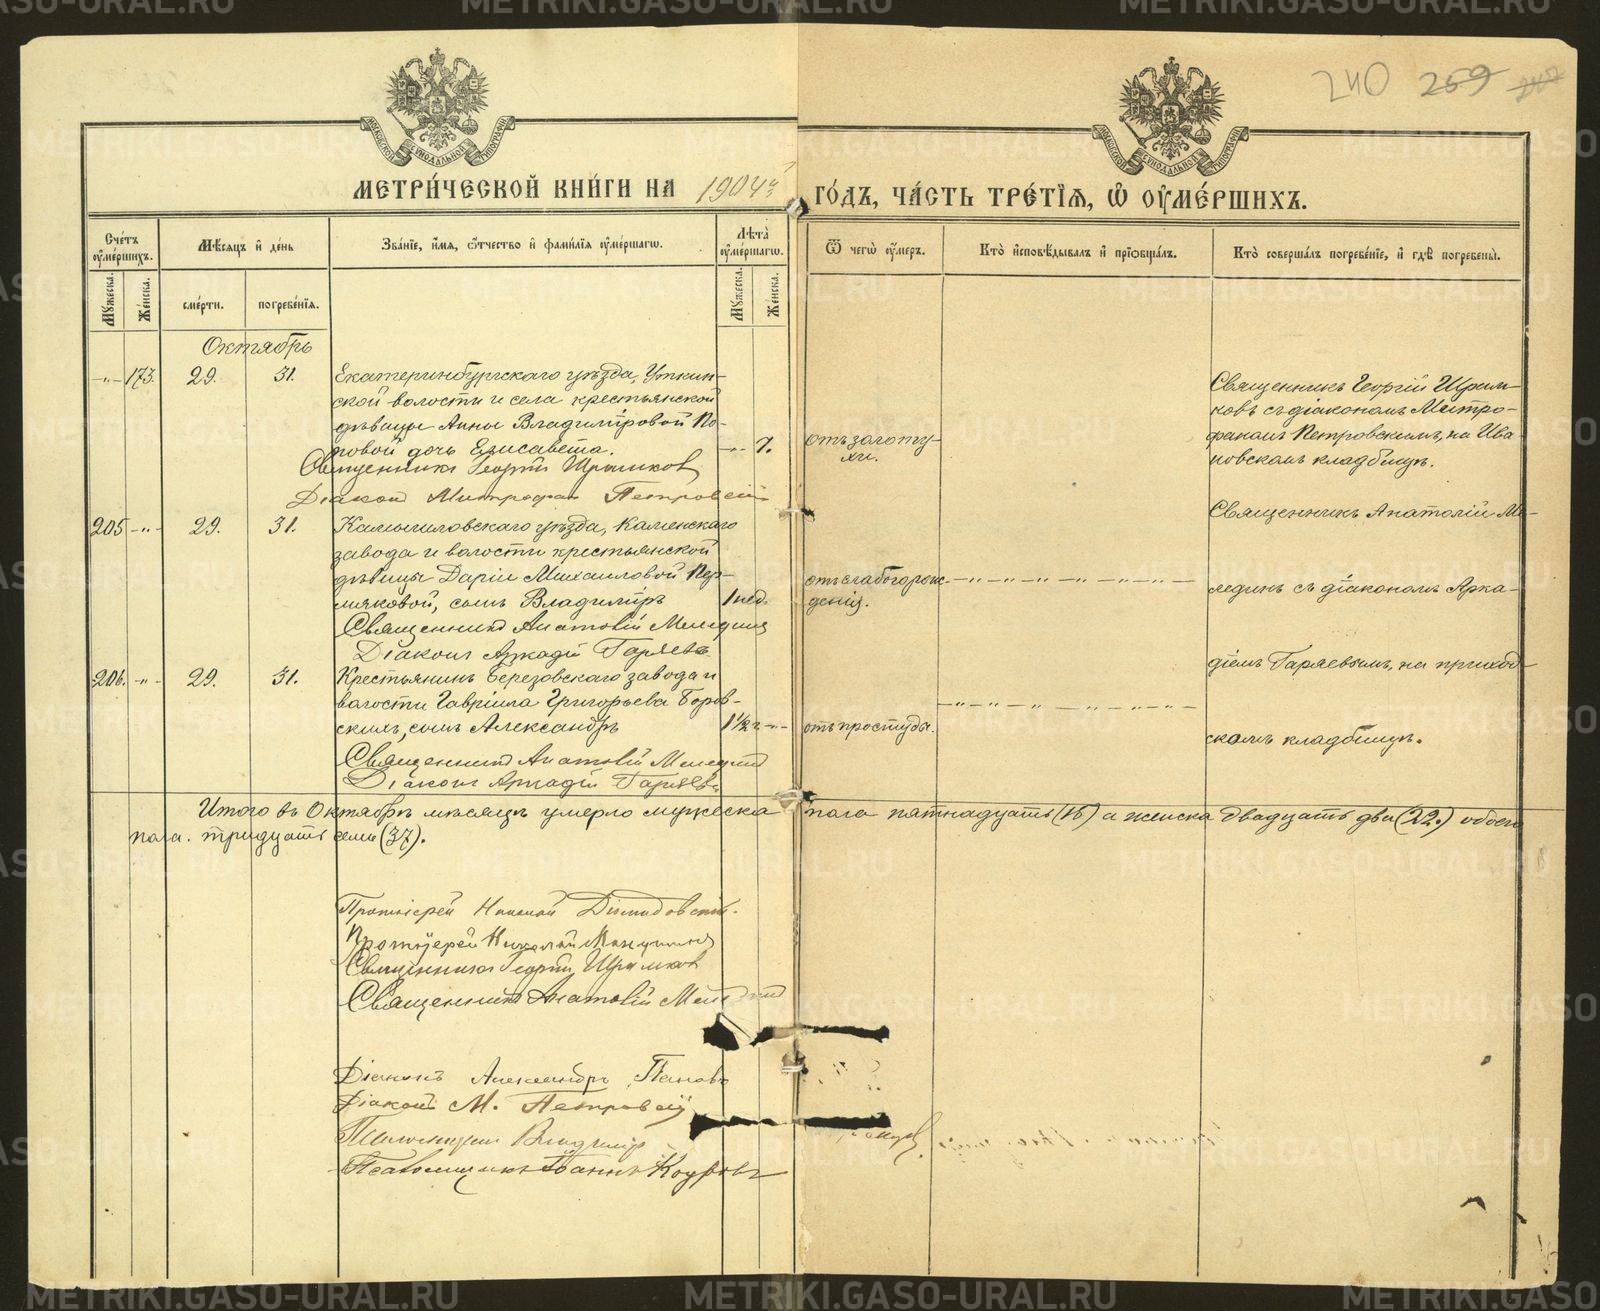 METRIKI.GASO-URAL.RU
240 259
МОСКОВСКОЙ СѴНОДАЛЬНОЙ ТИПОГРАФІИ
МОСКОВСКОЙ СѴНОДАЛЬНОЙ ТИПОГРАФІИ
МЕТРИ́ЧЕСКОЙ КНИ́ГИ НА 1904й ГО́ДЪ, ЧА́СТЬ ТРЕ́ТІѦ, Ѽ ОУ҆МЕ́РШИХЪ.
Счетъ оумершихъ.
Мужеска.
Женска.
Мѣсяцъ и день
смерти.
погребенія.
Званіе, имя, отчество и фамилія оумершагѡ.
Лѣта оумершагѡ.
Мужеска.
Женска.
Ѿ чегѡ оумеръ.
Кто исповѣдывалъ и пріобщалъ.
Кто совершалъ погребеніе, и гдѣ погребены.
Октябрь
-"- 173. 29. 31.
Екатеринбургскаго уѣзда, Уткин-
ской волости и села крестьянской
дѣвицы Анны Владиміровой По-
повой дочь Елисавета. -"- 7.
отъ золоту-
хи.
Священникъ Георгій
Діаконъ Митрофан Петровскій
Священникъ Георгій
ковъ съ діакономъ Митро-
фаномъ Петровскимъ, на Ива-
новскомъ кладбищѣ.
205 -"- 29. 31.
Камышловскаго уѣзда, Каменскаго
завода и волости крестьянской
дѣвицы Даріи Михаиловой Пер-
мяковой, сынъ Владиміръ 1 нед.
отъ слабогорож-
денія.
-"-"-"-"-"-
Священникъ Анатолій
Діаконъ Аркадій Гаряевъ
Священникъ Анатолій Ме-
ледин съ діакономъ Арка-
діемъ Гаряевымъ, на приход-
скомъ кладбищѣ.
206. -"- 29. 31.
Крестьянинъ Березовскаго завода и
волости Гавріила Григорьева Боров-
скихъ, сынъ Александръ 1½ г. -"-
отъ простуды.
-"-"-"-"-"-
Священникъ Анатолій
Діаконъ Аркадій Гаряевъ
Итого въ Октябрѣ мѣсяцѣ умерло мужеска пола пятнадцать (15) а женска двадцать два (22.) обоего
пола. тридцать семь (37).
Протоіерей Николай
Протоіерей Николай
Священникъ Георгій
Священникъ Анатолій
Діаконъ Александръ Пановъ
Діаконъ М. Петровскій
Псаломщикъ Владиміръ
Псаломщикъ Іоаннъ